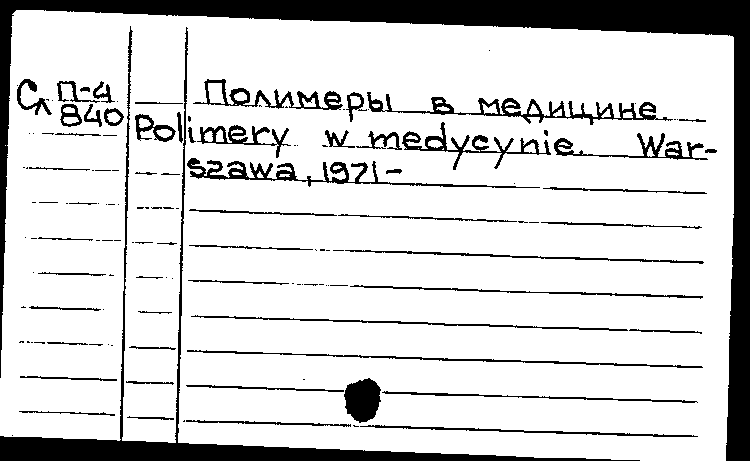 Сл П-4 Полимеры в медицине.
840
Polimery w medycynie. War-
szawa, 1971-